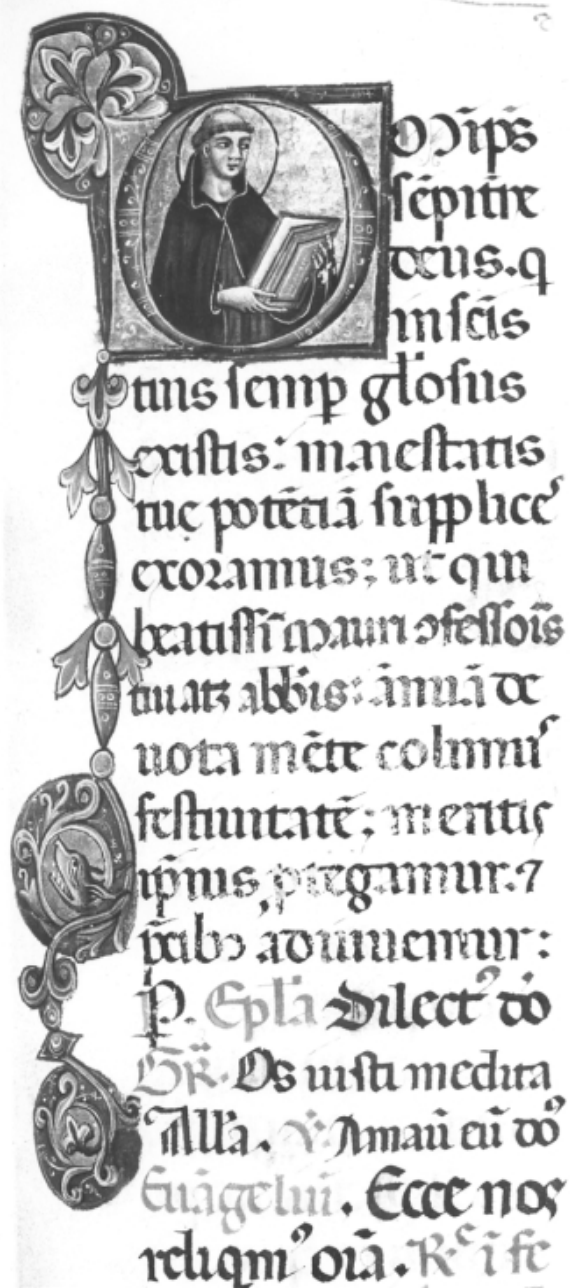 Om̄ips̄
sēpit̄ne
deus. q
in scīs
tuis semp gl̄osus
existis: maiestatis
tue potētiā supplice᷒
exoramus; ut qui
beatissīmi Mauri ↄfessoīs
tui atꝫ abbīs: ānuā de
uota mēte colimus
festiuitatē; meritis
ip̄ius, p̄tegamur. ⁊
p̄cibꝫ adiuuemur:
P. Epl̄a Dilect᷒ dō
GR̄. Os iusti medita
All̄a. V̄. Amauī eū dō᷒
Euāgeliū. Ecce nos
reliqm᷒ oīa. R. ī fe